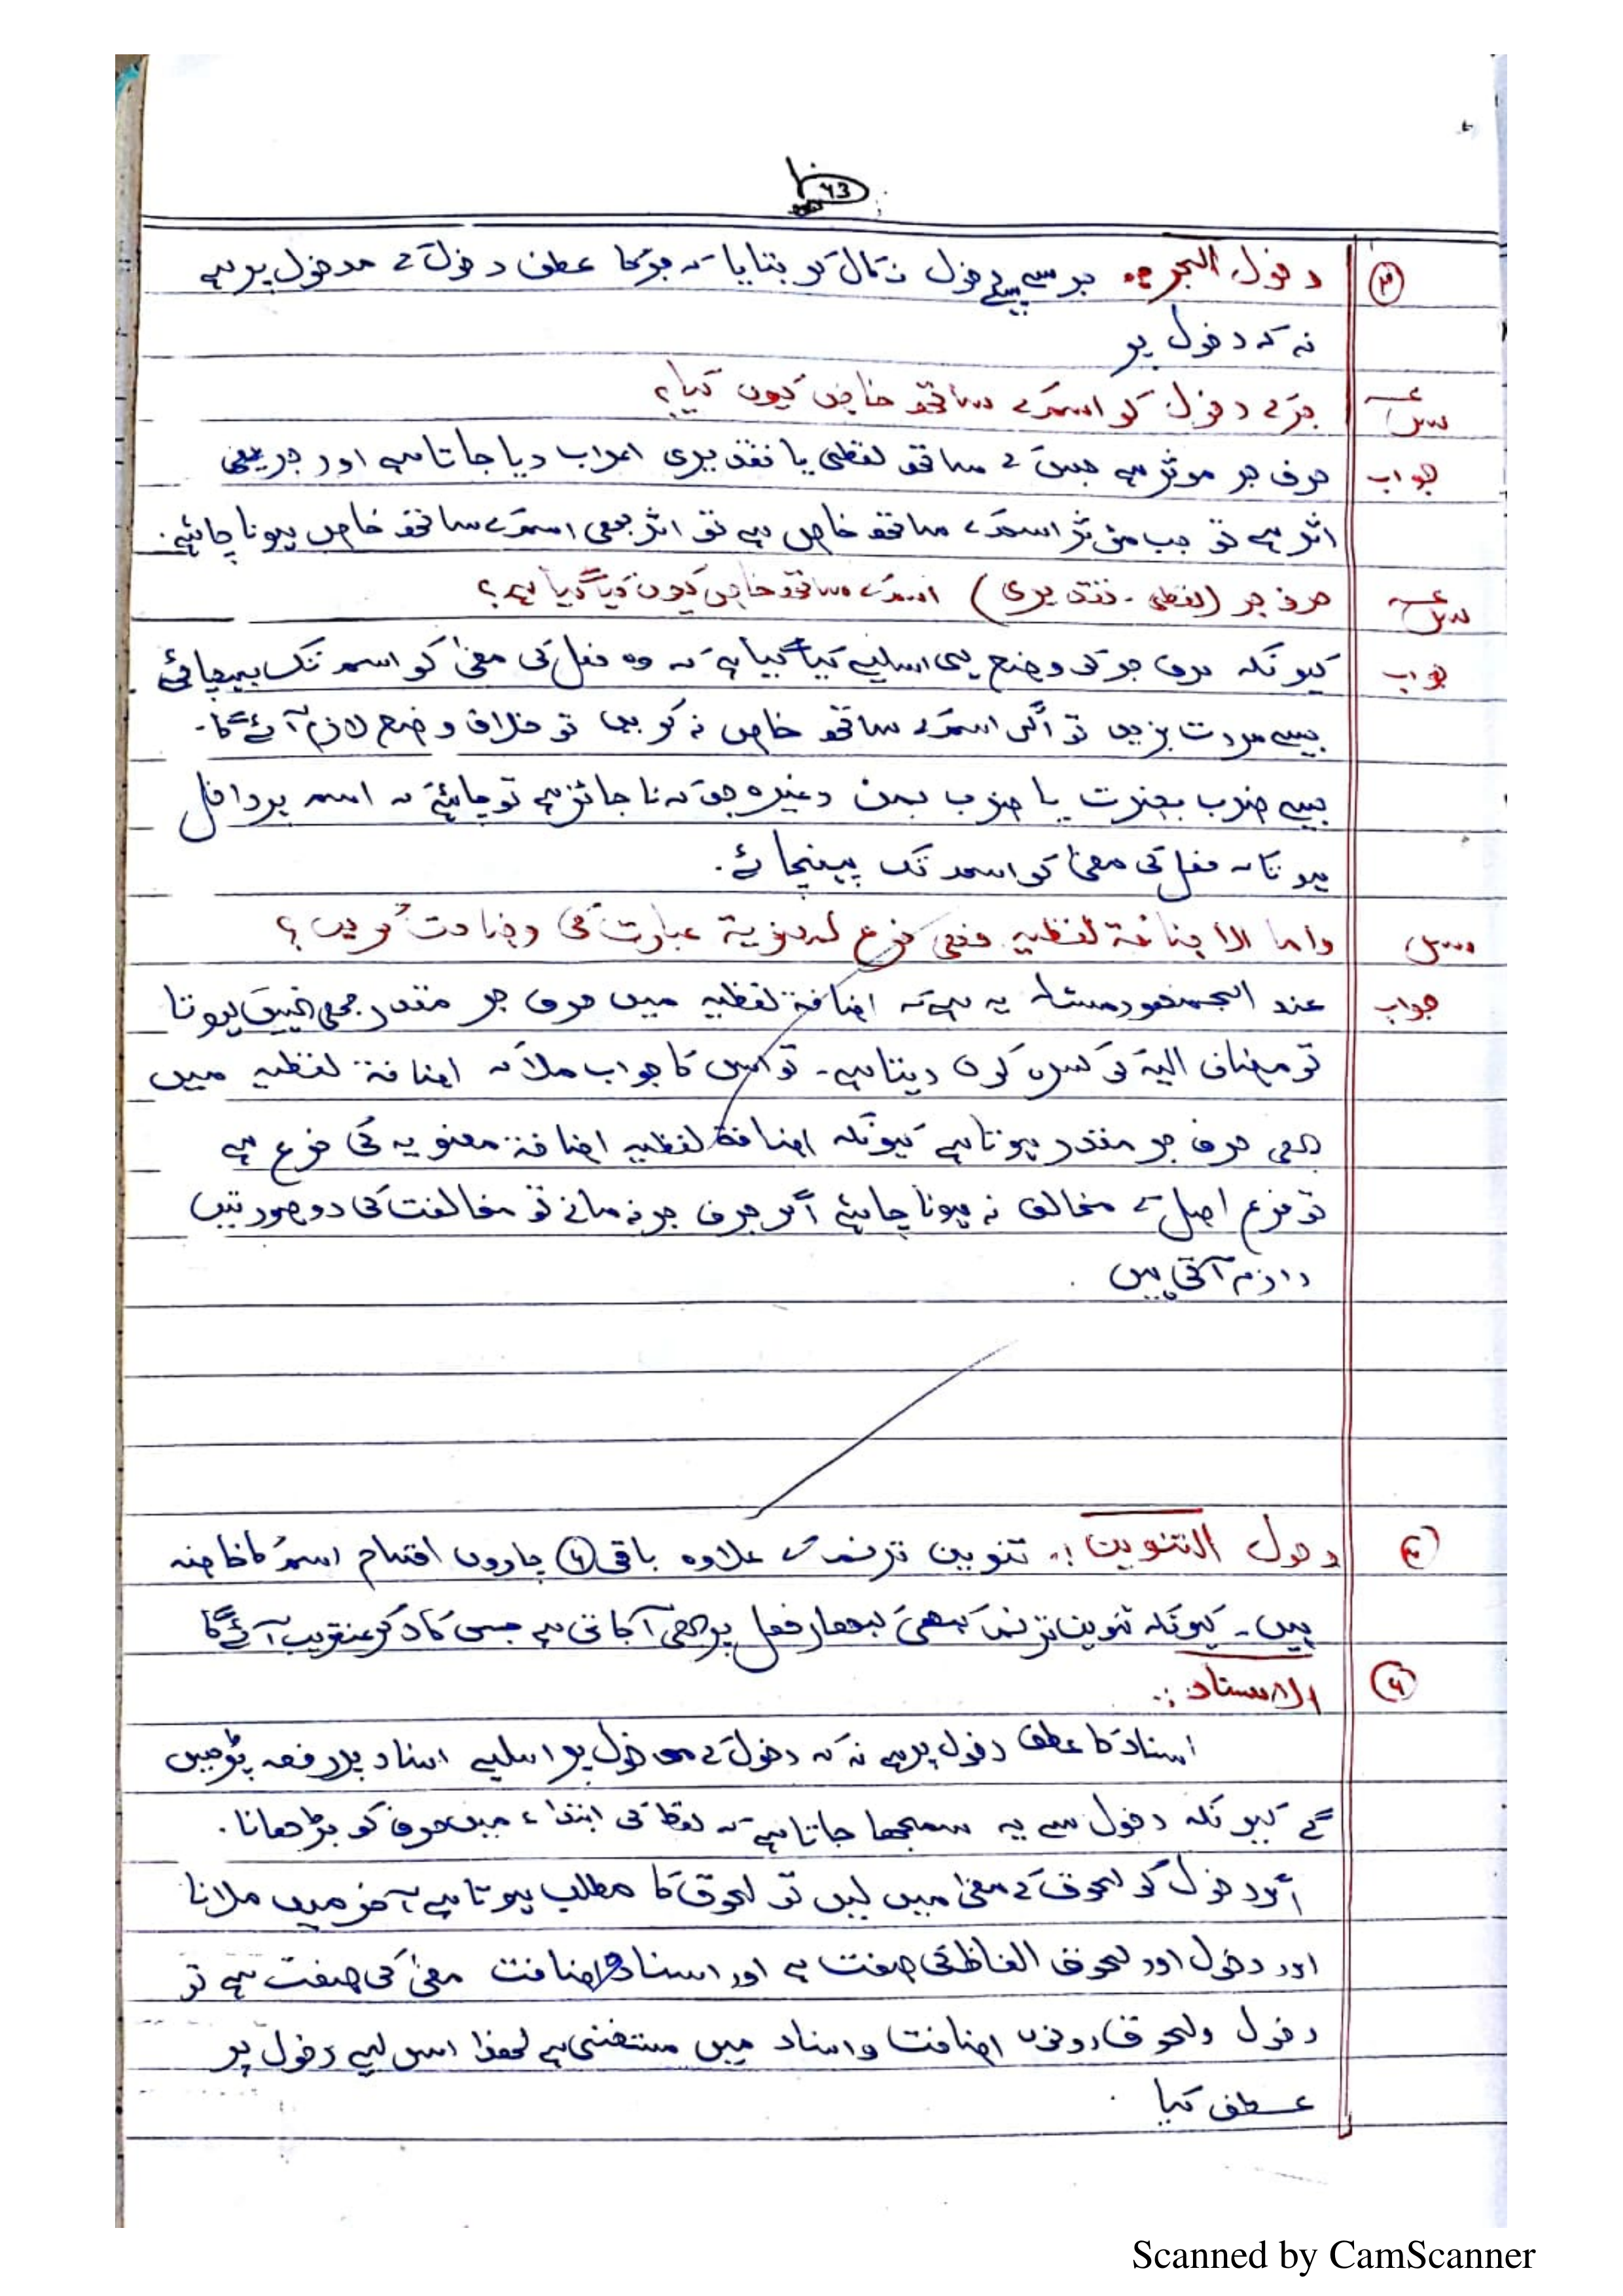 ۶۳
۳ دخول الجر :۔ جر سے پہلے دخول نکال کر بتایا کہ جر کا عطف دخول کے مدخول پر ہے
نہ کہ دخول پر
سوال جر کے دخول کو اسم کے ساتھ خاص کیوں کیا؟
جواب حرف جر موثر ہے جس کے ساتھ لفظی یا تقدیری اعراب دیا جاتا ہے اور جر یعنی
اثر ہے تو جب مؤثر اسم کے ساتھ خاص ہے تو اثر بھی اسم کے ساتھ خاص ہونا چاہئے۔
سوال حرف جر (لفظی ۔ تقدیری) اسم کے ساتھ خاص کیوں کیا گیا ہے؟
جواب کیونکہ حرف جر کی وضع ہی اسلیے کیا گیا ہے کہ وہ فعل کی معنیٰ کو اسم تک پہنچائے
جیسے مررت بزید تو اگر اسم کے ساتھ خاص نہ کریں تو خلاف وضع لازم آئے گا۔
جیسے ضرب بضرب یا ضرب بمن وغیرہ جو کہ نا جائز ہے تو چاہئے کہ اسم پر داخل
ہو تاکہ فعل کی معنیٰ کو اسم تک پہنچائے۔
سوال واما الاضافة لفظیه فھی فرع لمعنویة عبارت کی وضاحت کریں؟
جواب عند الجمھور مسئلہ یہ ہے کہ اضافة لفظیہ میں حرف جر مقدر بھی نہیں ہوتا
تو مضاف الیہ کو کسرہ کون دیتا ہے۔ تو اس کا جواب ملا کہ اضافة لفظیہ میں
بھی حرف جر مقدر ہوتا ہے کیونکہ اضافة لفظیہ اضافة معنویہ کی فرع ہے
تو فرع اصل کے مخالف نہ ہونا چاہئے اگر حرف جر نہ مانے تو مخالفت کی دو صورتیں
لازم آتی ہیں
۴ دخول التنوین :۔ تنوین ترنم کے علاوہ باقی ۴ چاروں اقسام اسم کا خاصہ
ہیں۔ کیونکہ تنوین ترنم کبھی کبھار فعل پر بھی آ جاتی ہے جس کا ذکر عنقریب آئے گا
الاسناد :۔
اسناد کا عطف دخول پر ہے نہ کہ دخول کے مدخول پر اسلیے اسناد پر رفعہ پڑھیں
گے کیونکہ دخول سے یہ سمجھا جاتا ہے کہ لفظ کی ابتداء میں حرف کو بڑھانا۔
اگر دخول کو لحوق کے معنیٰ میں لیں تو لحوق کا مطلب ہوتا ہے آخر میں ملانا
اور دخول اور لحوق الفاظ کی صفت ہے اور اسناد و اضافت معنیٰ کی صفت ہے تو
دخول ولحوق دونوں اضافت و اسناد میں منتفی ہے لھٰذا اس لیے دخول پر
عطف کیا۔
Scanned by CamScanner